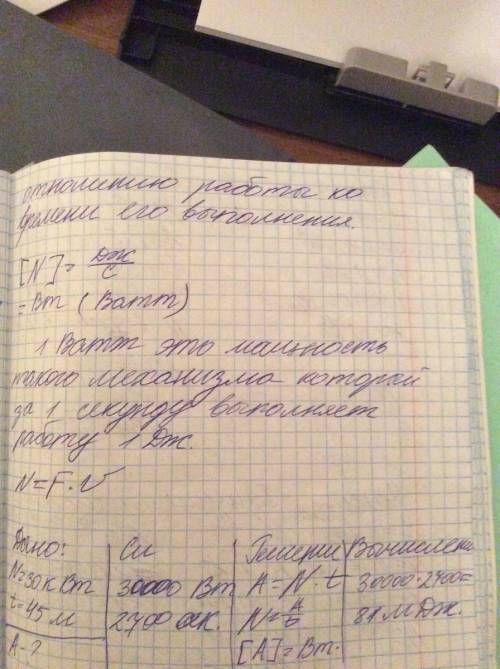 отношению работы ко
времени его выполнения.
[N] = Дж/С
= Вт (Ватт)
1 Ватт это мощность
такого механизма который
за 1 секунду выполняет
работу 1 Дж.
N = F · v
Дано:
N = 30 к Вт
t = 45 м
A - ?
Си
30000 Вт
2700 сек.
A = N · t
N = A/t
[A] = Вт.
Вычислени
30000 · 2700 =
81 МДж.